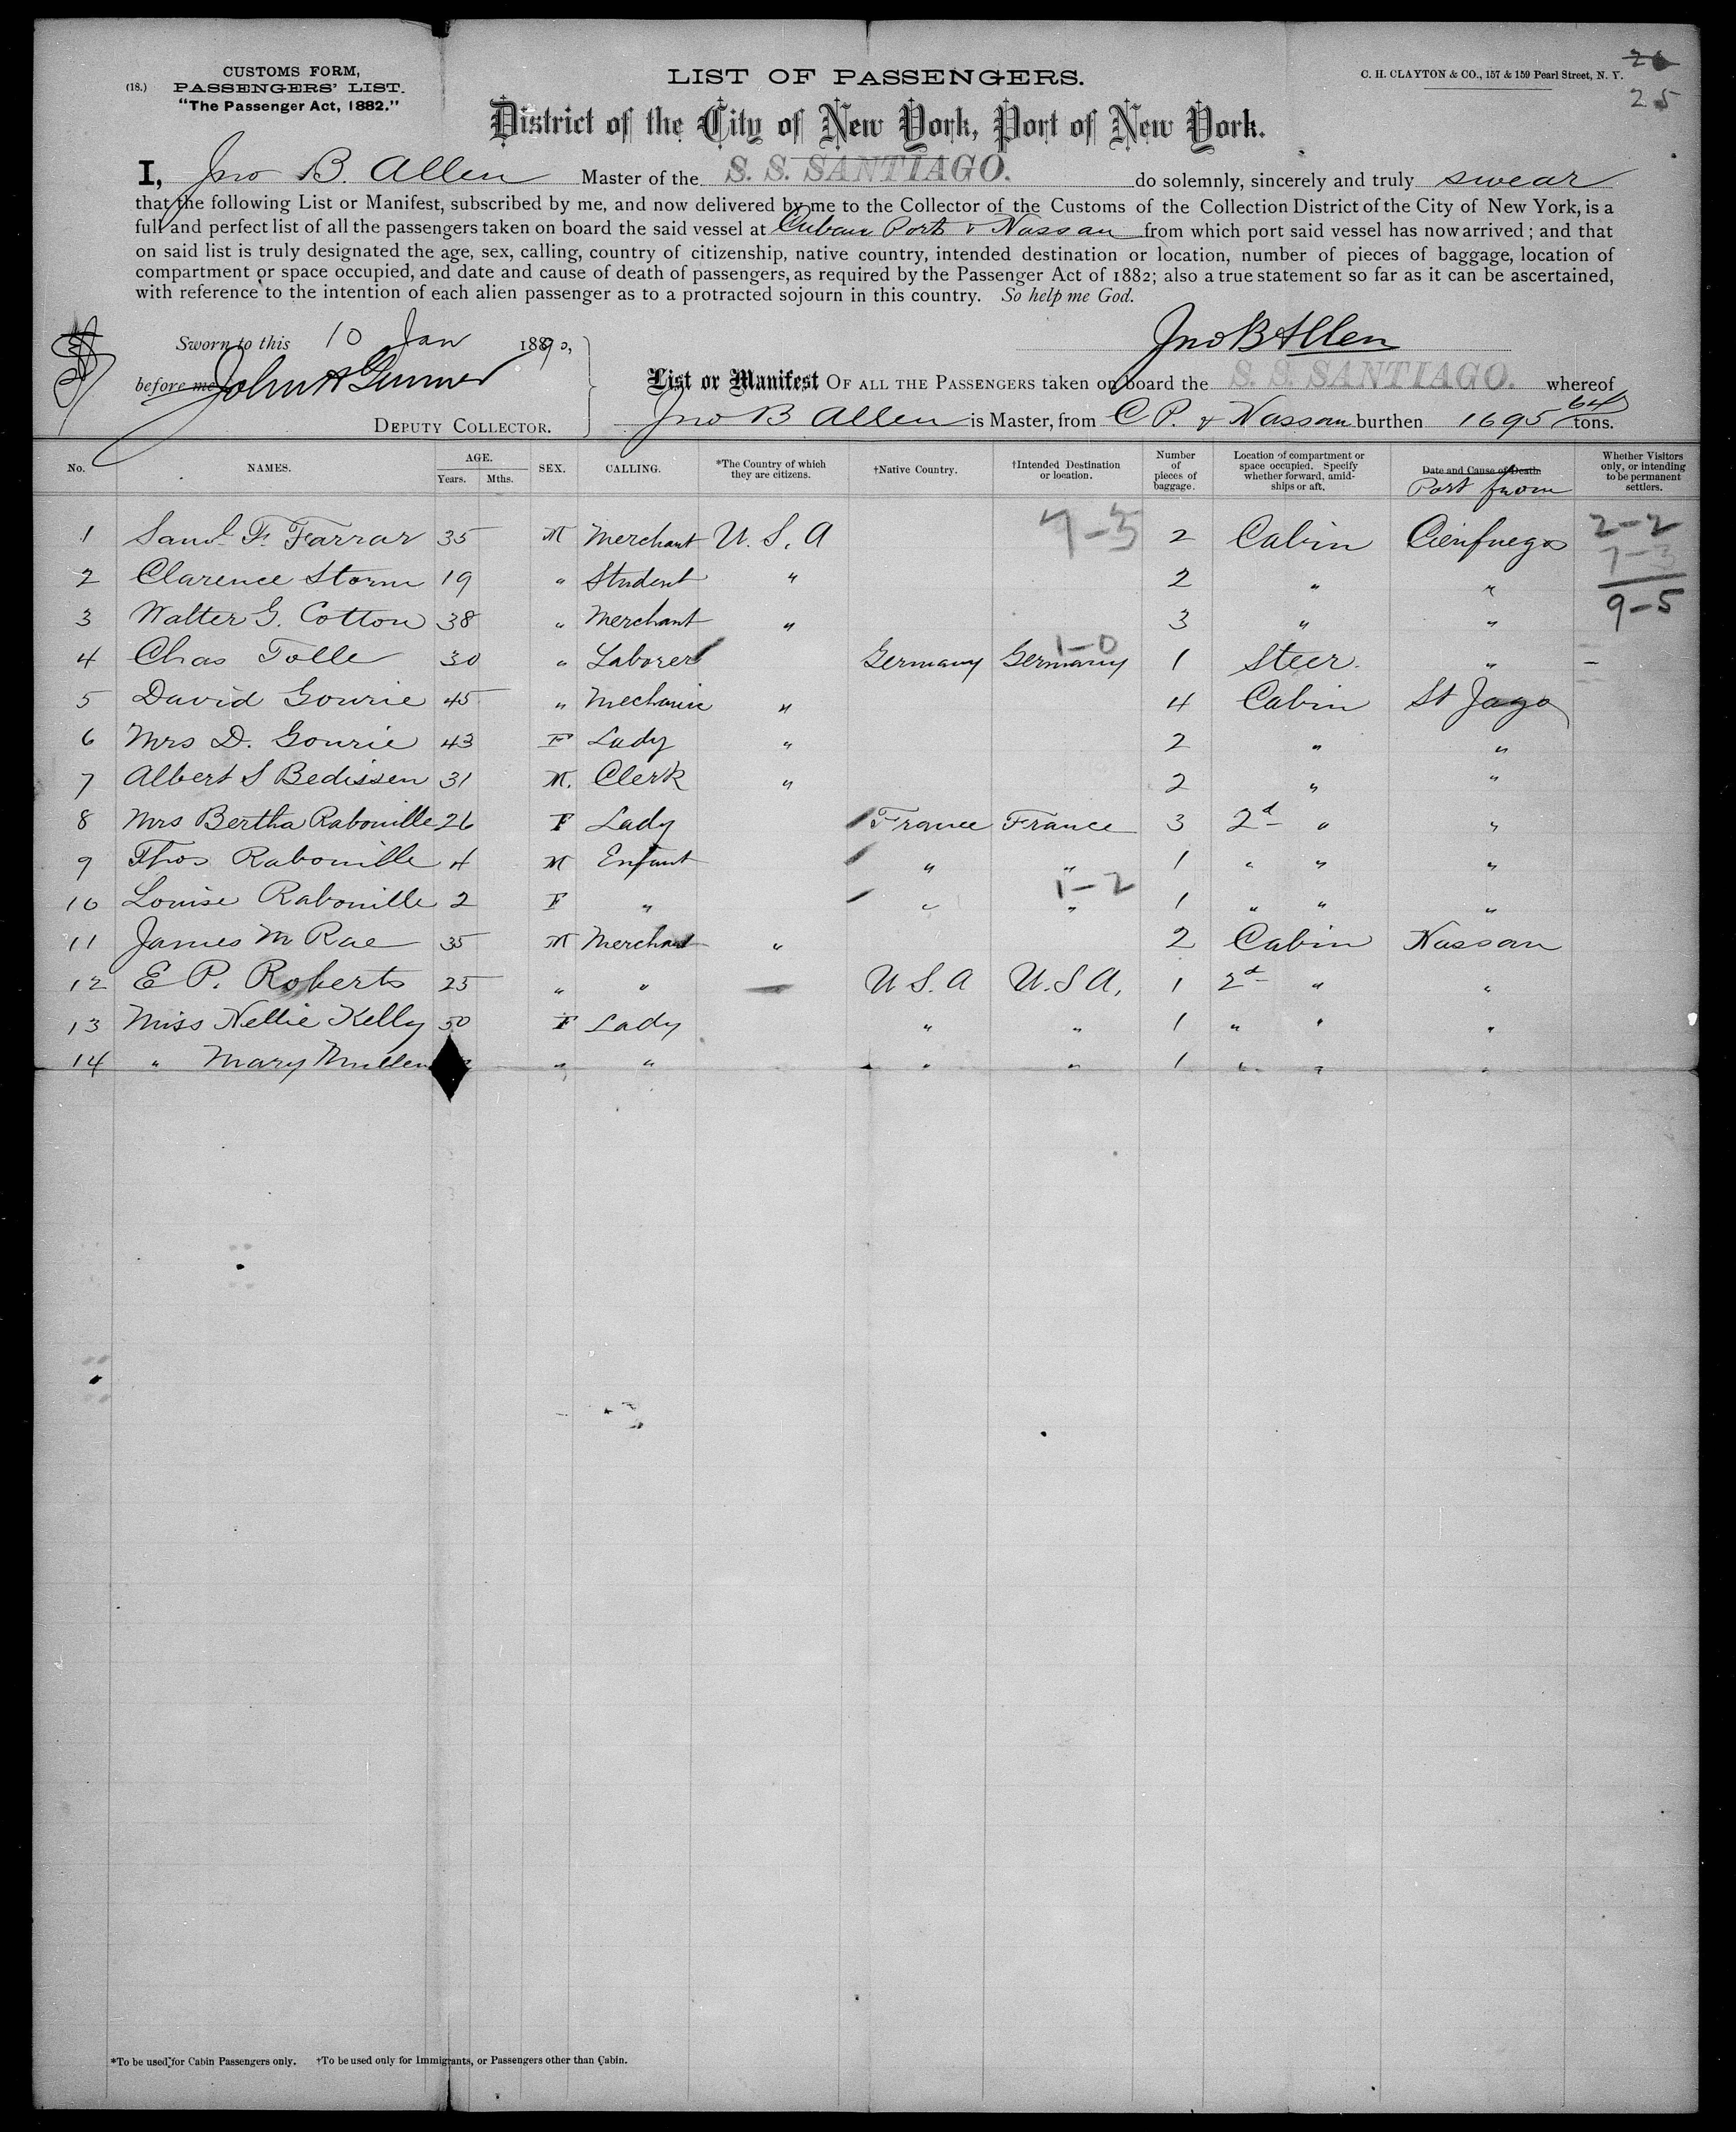 CUSTOMS FORM,
(18.) PASSENGERS' LIST.
"The Passenger Act, 1882."
LIST OF PASSENGERS.
C. H. CLAYTON & CO., 157 & 159 Pearl Street, N. Y.
26
25
District of the City of New York, Port of New York.
I, Jno B. Allen Master of the S. S. SANTIAGO. do solemnly, sincerely and truly swear
that the following List or Manifest, subscribed by me, and now delivered by me to the Collector of the Customs of the Collection District of the City of New York, is a
full and perfect list of all the passengers taken on board the said vessel at Cuban Ports & Nassau from which port said vessel has now arrived; and that
on said list is truly designated the age, sex, calling, country of citizenship, native country, intended destination or location, number of pieces of baggage, location of
compartment or space occupied, and date and cause of death of passengers, as required by the Passenger Act of 1882; also a true statement so far as it can be ascertained,
with reference to the intention of each alien passenger as to a protracted sojourn in this country. So help me God.
Sworn to this 10 Jan 1890,
Jno B Allen
before me John A
DEPUTY COLLECTOR.
List or Manifest OF ALL THE PASSENGERS taken on board the S. S. SANTIAGO. whereof
Jno B Allen is Master, from C P. & Nassau burthen 1695 64/ tons.
No. NAMES. AGE. Years. Mths. SEX. CALLING. *The Country of which they are citizens. †Native Country. †Intended Destination or location. Number of pieces of baggage. Location of compartment or space occupied. Specify whether forward, amidships or aft. Date and Cause of Death Port from Whether Visitors only, or intending to be permanent settlers.
1 Saml. F. Farrar 35 M Merchant U. S. A 7-3 2 Cabin Cienfuegos 2-2
7-3
2 Clarence Storm 19 " Student " 2 " "
9-5
3 Walter G. Cotton 38 " Merchant " 3 " "
4 Chas Tolle 30 " Laborer Germany Germany 1-0 1 Steer. " -
5 David Gourie 45 " Mechanic " 4 Cabin St Jago
6 Mrs D. Gourie 43 F Lady " 2 " "
7 Albert S Bedissen 31 M. Clerk " 2 " "
8 Mrs Bertha Rabouille 26 F Lady France France 3 2d " "
9 Thos Rabouille 4 M Enfant " " 1 " " "
10 Louise Rabouille 2 F " " 1-2 " 1 " " "
11 James M Rae 35 M Merchant " 2 Cabin Nassau
12 E P. Roberts 25 " " — U S. A U. S A, 1 2d " "
13 Miss Nellie Kelly 50 F Lady " " 1 " " "
14 " Mary Mullen " " " " 1 " " "
*To be used for Cabin Passengers only. †To be used only for Immigrants, or Passengers other than Cabin.